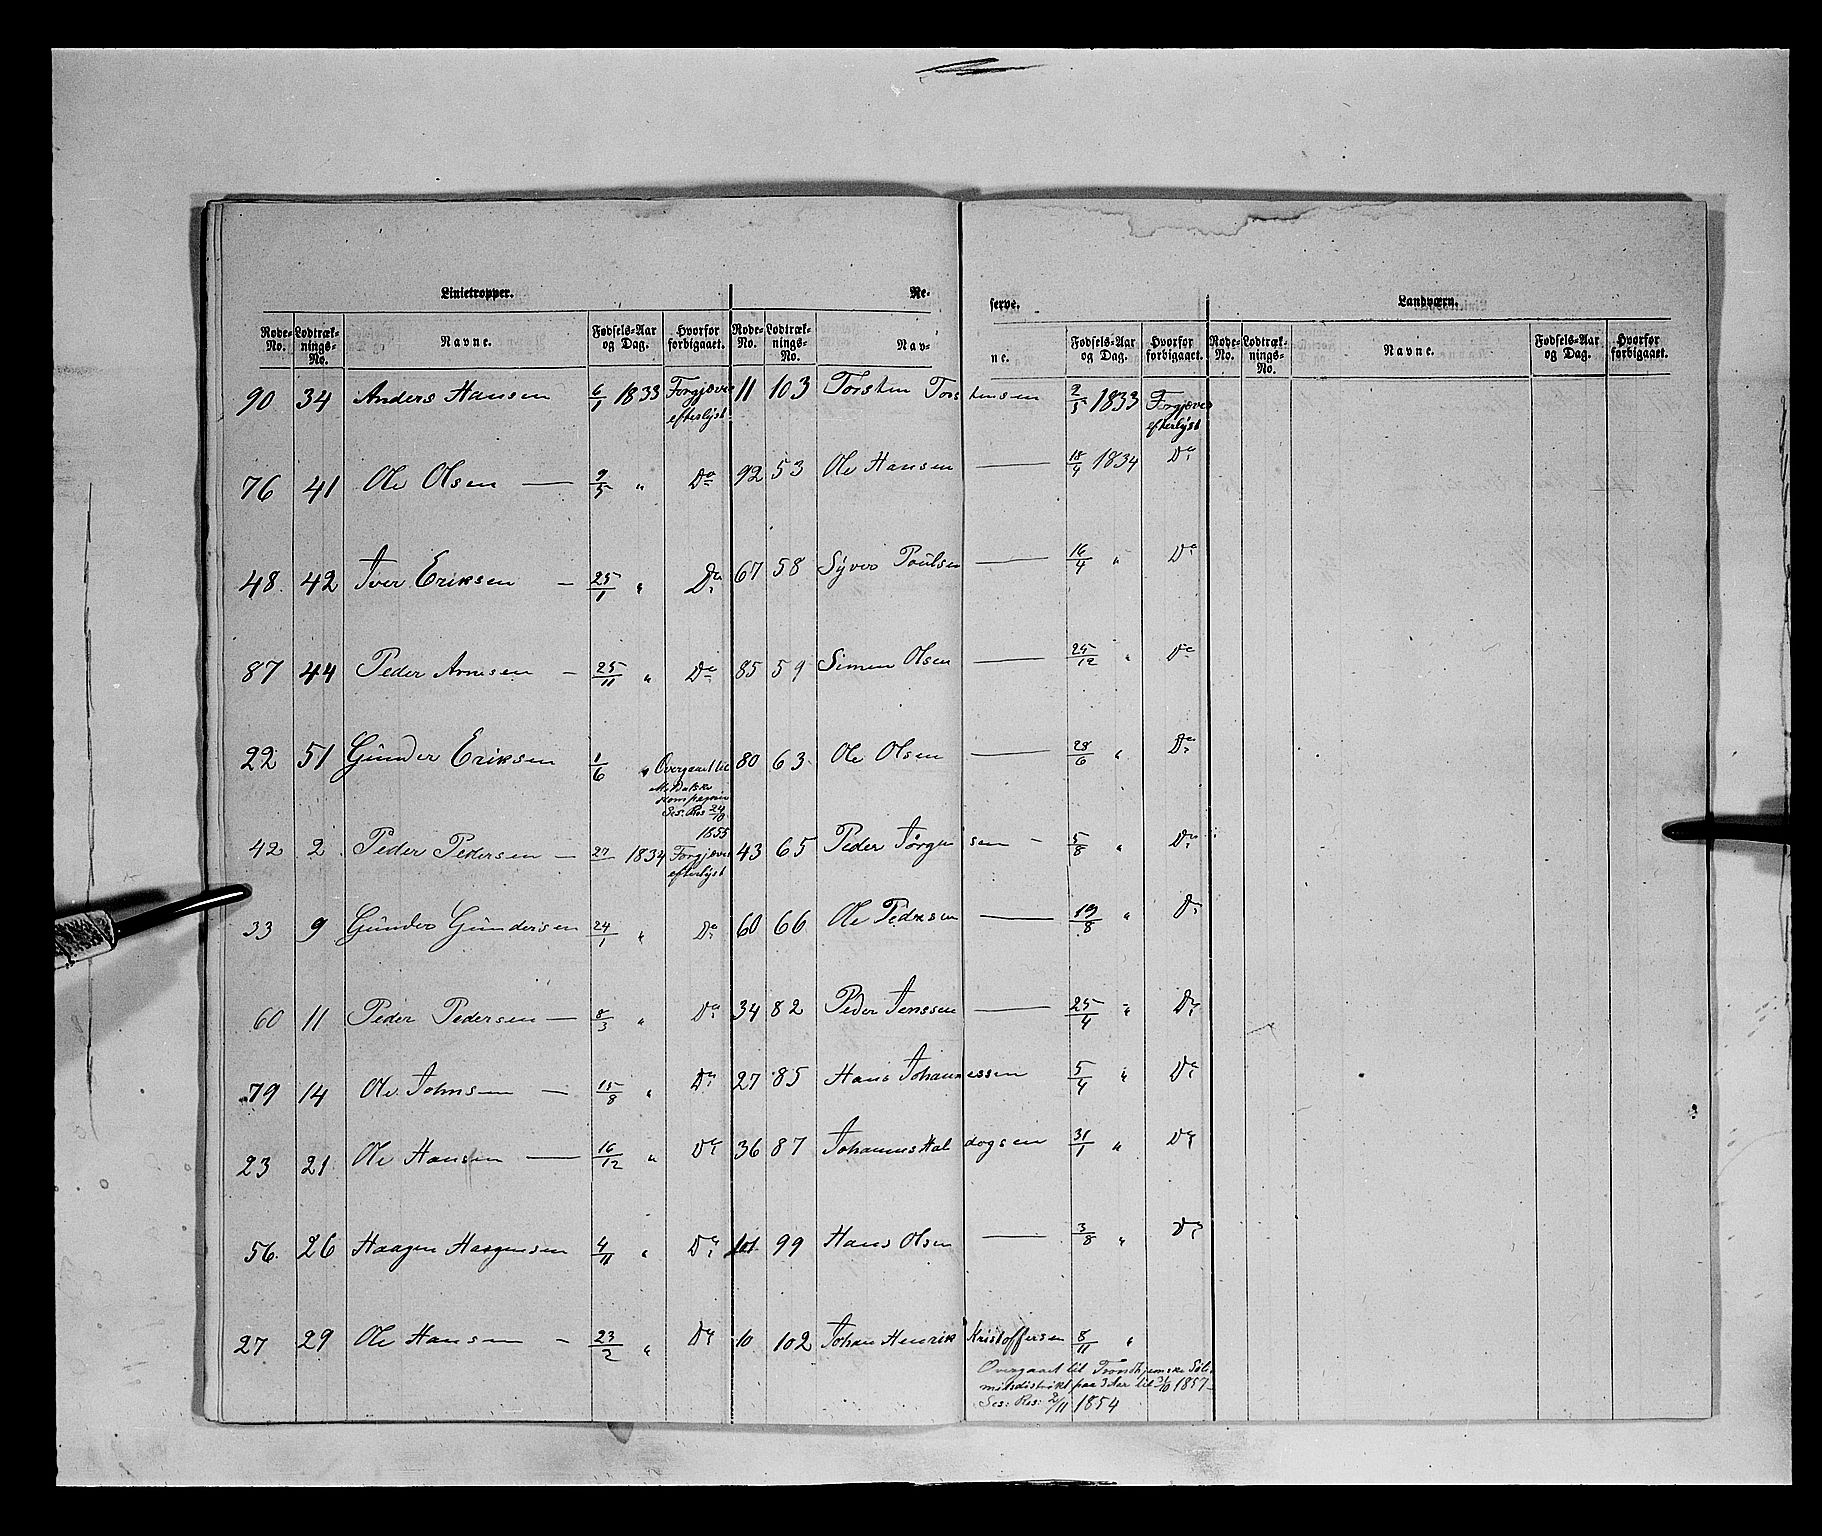 Linietropper. Reserve. Landværn.
Rode-No. Lodtræknings-No. Navne. Fødsels-Aar og Dag. Hvorfor forbigaaet. Rode-No. Lodtræknings-No. Navne. Fødsels-Aar og Dag. Hvorfor forbigaaet. Rode-No. Lodtræknings-No. Navne. Fødsels-Aar og Dag. Hvorfor forbigaaet.
90 34 Anders Hansen 6/1 1833 Forgjæves efterlyst. 11 103 Torsten Torstensen 2/5 1833 Forgjæves efterlyst
76 41 Ole Olsen — 9/5 " Do 92 53 Ole Hansen — 18/4 1834 Do
48 42 Iver Eriksen — 25/1 " Do 67 58 Syver Poulsen — 16/4 " Do
87 44 Peder Arnesen — 25/11 " Do 85 59 Simen Olsen — 25/12 " Do
22 51 Gunder Eriksen 1/6 " Overgaaet til Kompagnie Ses: Res 24/10 1855 80 63 Ole Olsen — 28/6 " Do
42 2 Peder Pedersen — 27 1834 Forgjæves efterlyst 43 65 Peder Jørgensen — 5/8 " Do
33 9 Gunder Gundersen 24/1 " Do 60 66 Ole Pedersen — 19/8 " Do
60 11 Peder Pedersen — 8/3 " Do 34 82 Peder Jenssen — 25/4 " Do
79 14 Ole Johnsen — 15/8 " Do 27 85 Hans Johannessen 5/4 " Do
23 21 Ole Hansen — 16/12 " Do 36 87 Johannes Haldogsen 31/1 " Do
56 26 Haagen Haagensen 4/11 " Do 101 99 Hans Olsen — 3/8 " Do
27 29 Ole Hansen — 23/2 " Do 10 102 Johan Henrik Kristoffersen 8/11 "
Overgaaet til Trondhjemske
paa 3 Aar til 1857 —
Ses: Res: 2/11 1854